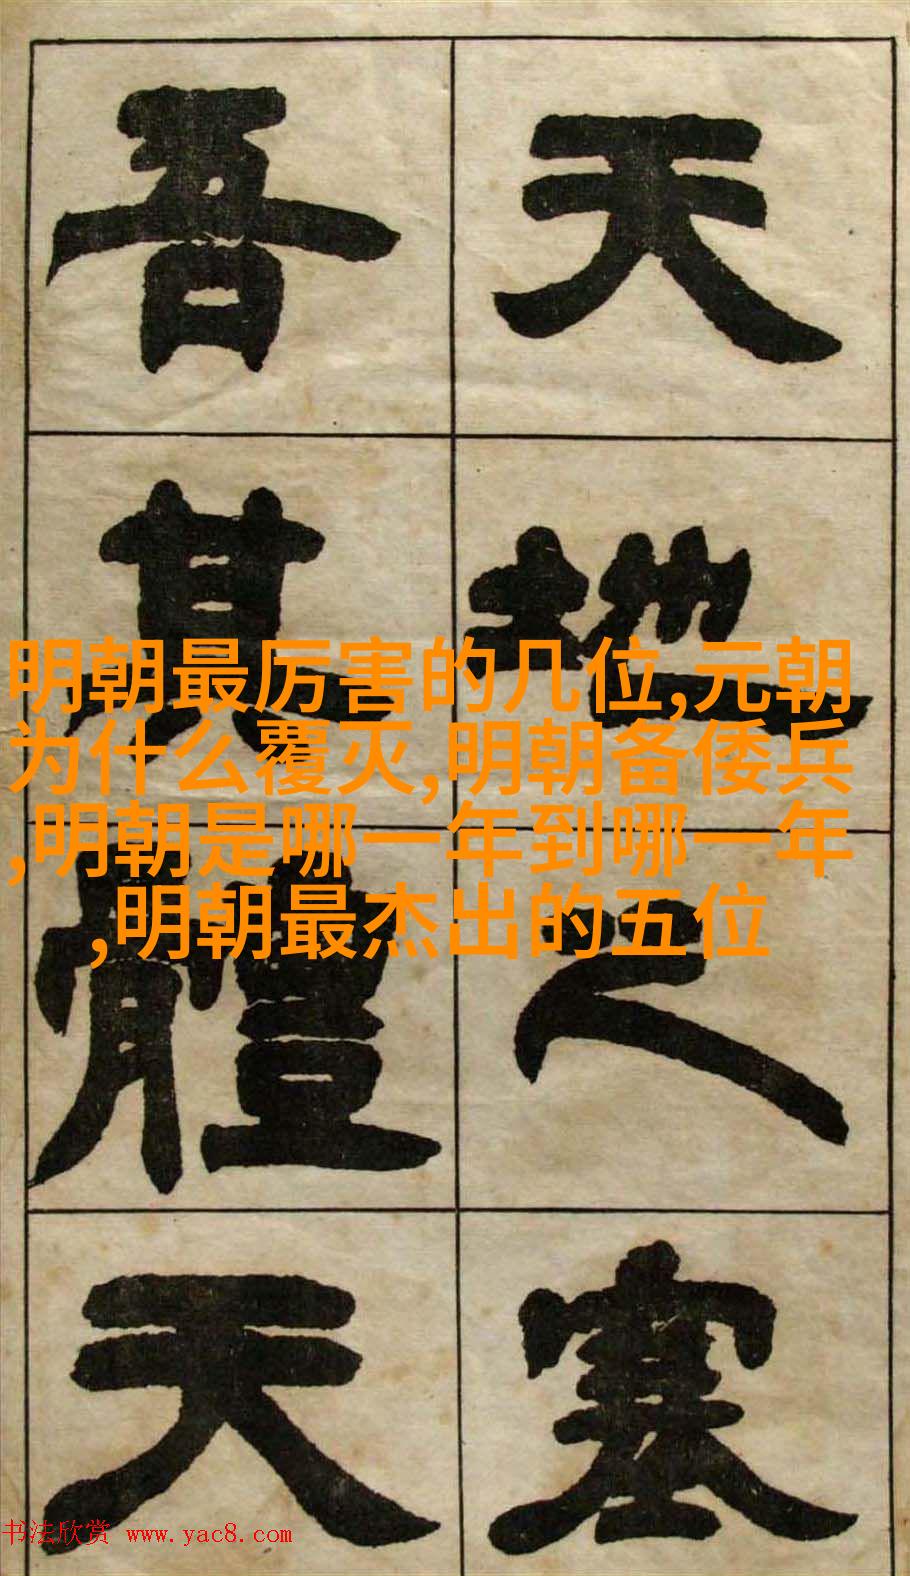 天地之塞
吾其體天
明朝最厉害的几位,元朝
为什么覆灭,明朝备倭兵
,明朝是哪一年到哪一年
,明朝最杰出的五位
书法欣赏 www.yac8.com